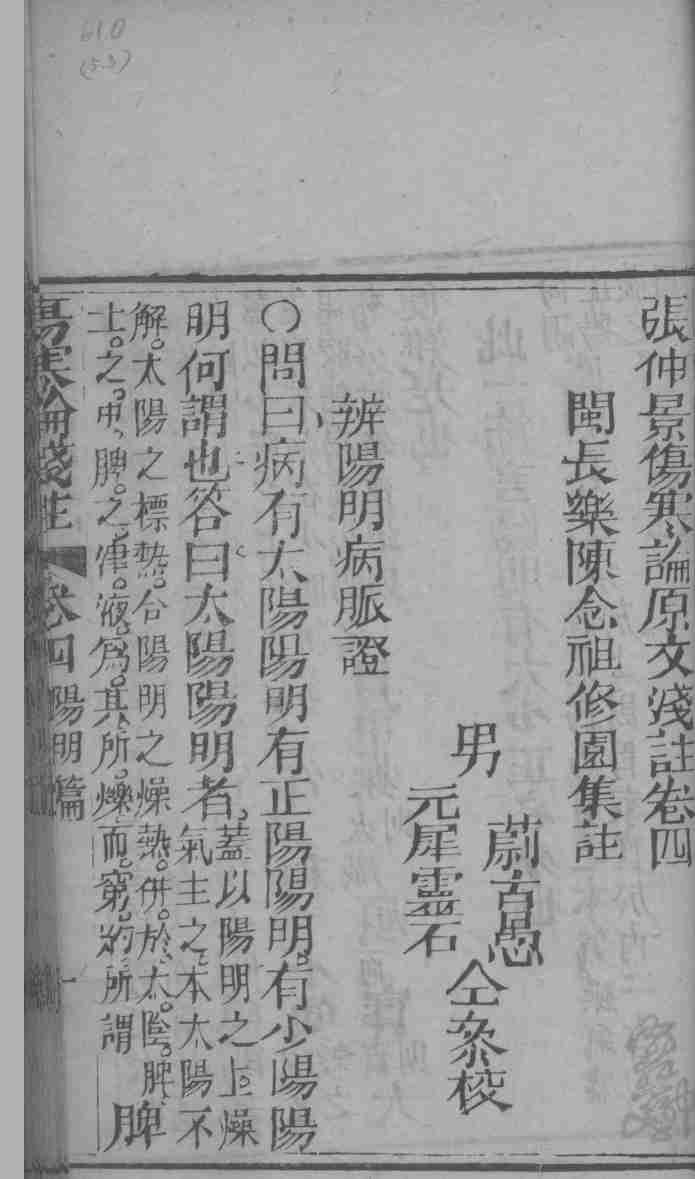 610
(5-3)
張仲景傷寒論原文淺註卷四
閩長樂陳念祖修園集註
男
蔚古愚
元犀靈石
仝叅挍
辨陽明病脈證
○問曰病有太陽陽明有正陽陽明有少陽陽
明何謂也答曰太陽陽明者
蓋以陽明之上燥
氣主之本太陽不
解太陽之標熱合陽明之燥熱併於太陰脾
土之中脾之津液為其所爍而窮約所謂
脾
傷寒論淺註
卷四陽明篇
一